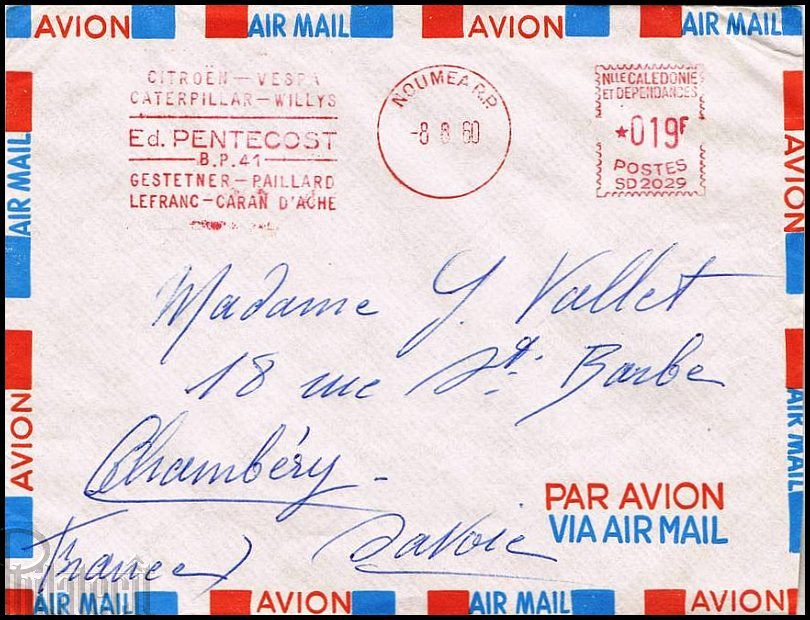 AVION AIR MAIL AVION AIR MAIL
CITROËN — VESPA
CATERPILLAR — WILLYS
Ed. PENTECOST
B.P. 41
GESTETNER — PAILLARD
LEFRANC — CARAN D'ACHE
NOUMEA R.P.
-8 8 60
NLLE CALEDONIE
ET DEPENDANCES
*019F
POSTES
SD 2029
AIR MAIL
AVION
AVION
AIR MAIL
Madame Y. Vallet
18 rue Ste Barbe
Chambéry -
France) Savoie
PAR AVION
VIA AIR MAIL
AIR MAIL AVION AIR MAIL AVION